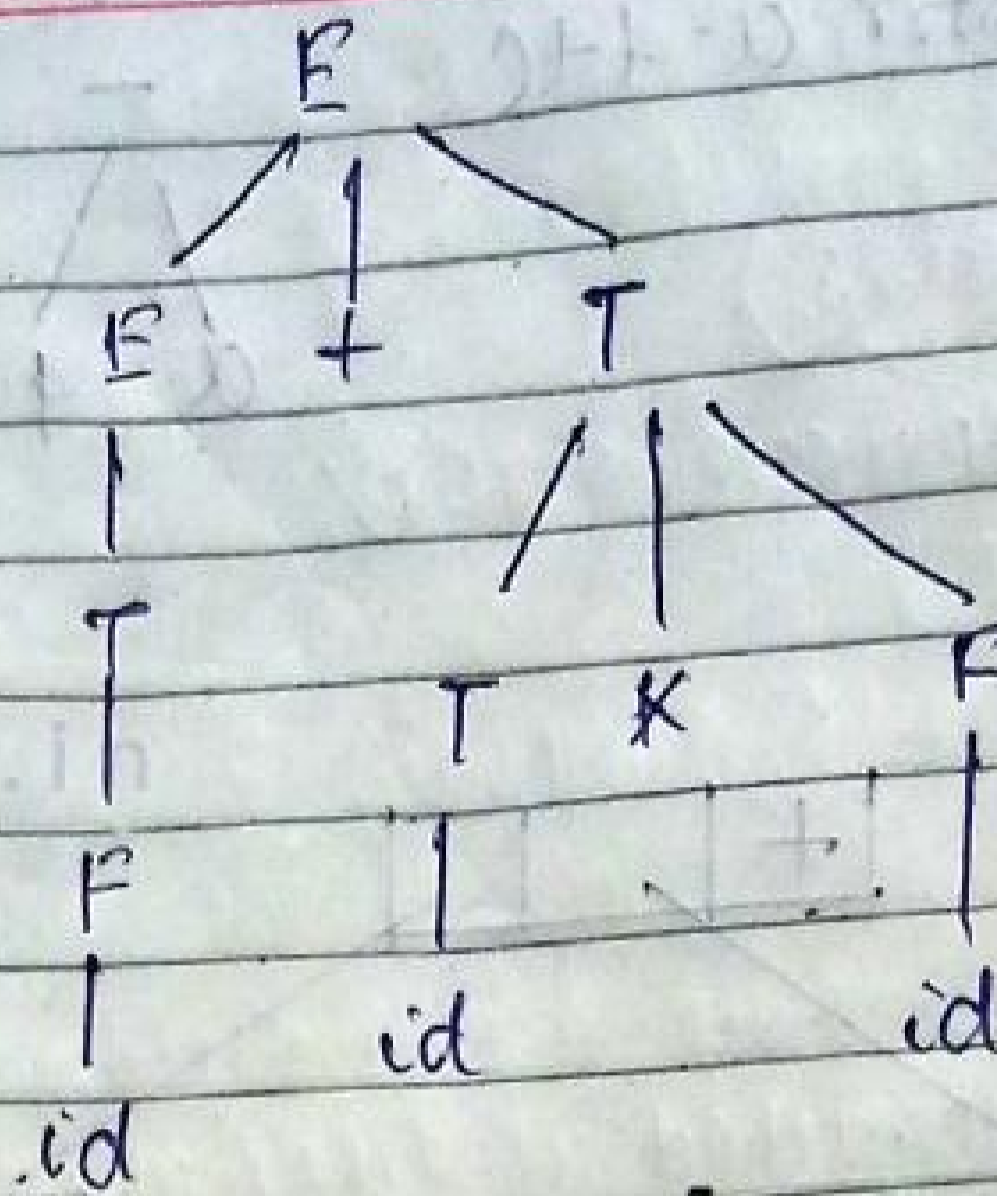 E
E + T
T
T * F
F
id id
id